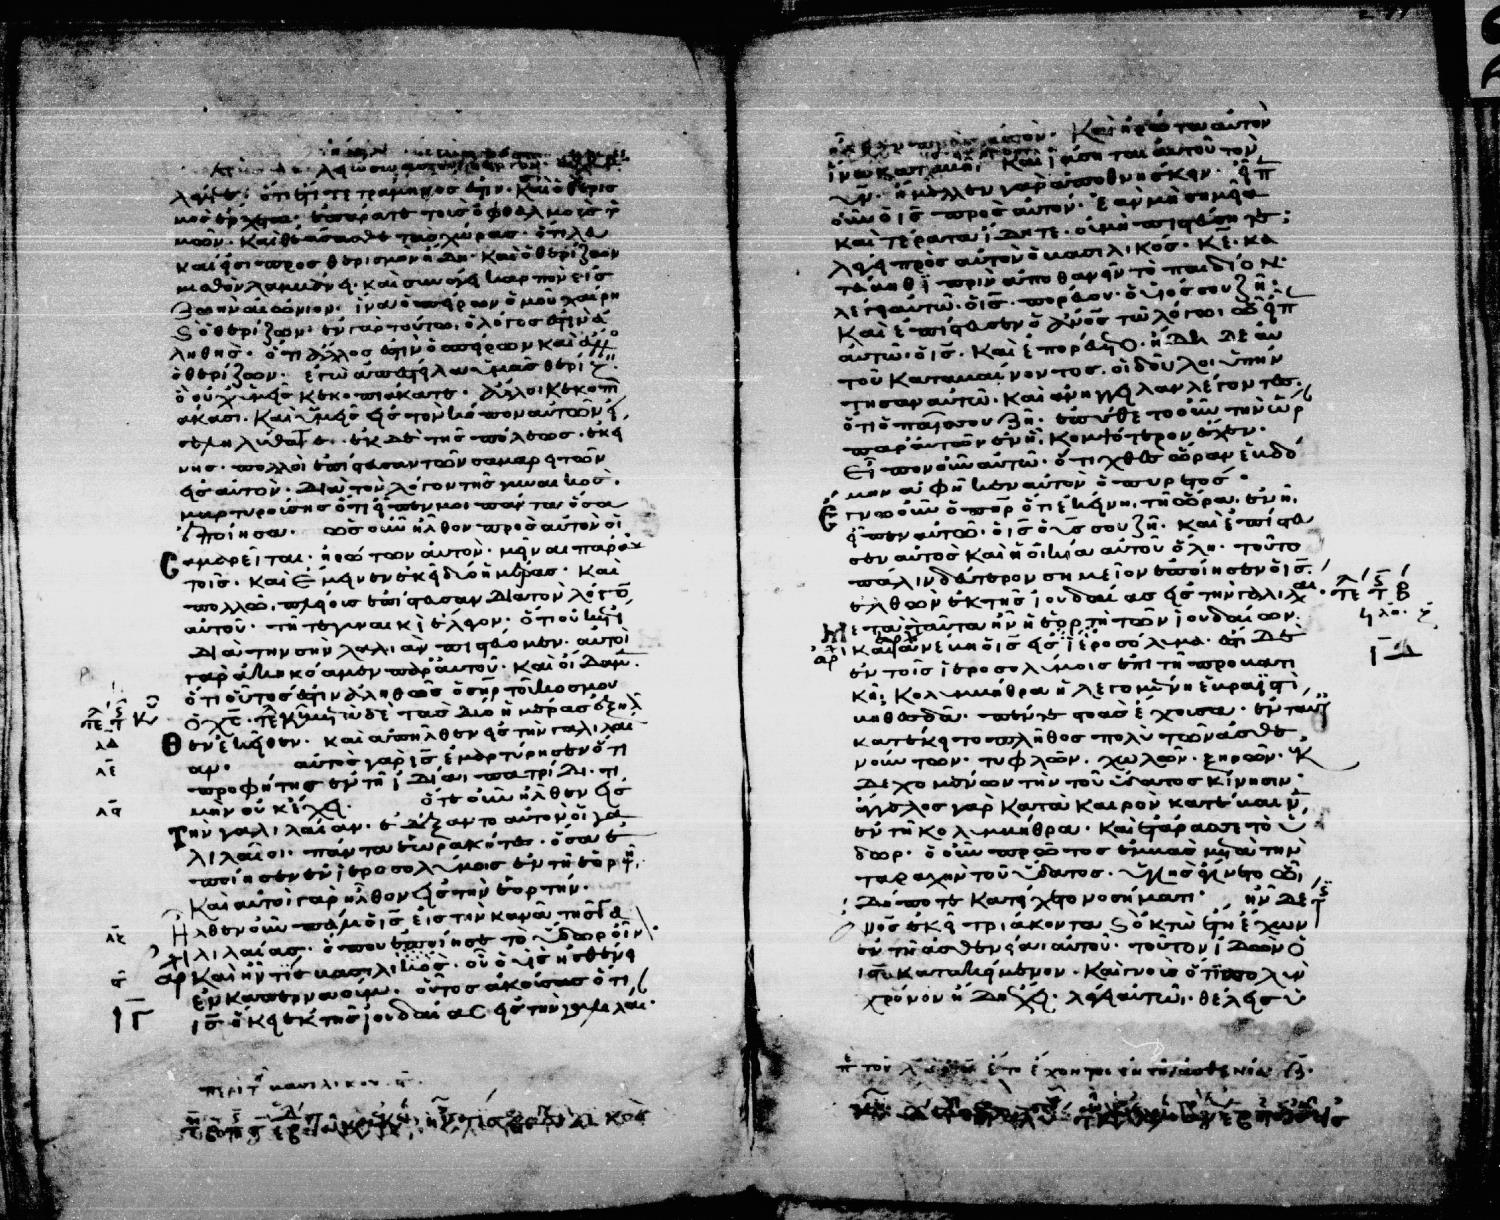 λέγετε· ὅτι ἔτι τετράμηνός ἐστιν· καὶ ὁ θερισ
μὸς ἔρχεται· ἐπάρατε τοὺς ὀφθαλμοὺς ὑ
μῶν· καὶ θεάσασθε τὰς χώρας· ὅτι λευ
καί εἰσι πρὸς θερισμὸν ἤδη· καὶ ὁ θερίζων
μισθὸν λαμβάνει· καὶ συνάγει καρπὸν εἰς
ζωὴν αἰώνιον· ἵνα ὁ σπείρων ὁμοῦ χαίρη
ϗ ὁ θερίζων· ἐν γὰρ τούτω ὁ λόγος ἐστὶν ἀ
ληθής· ὅτι ἄλλος ἐστὶν ὁ σπείρων καὶ ἄλλος
ὁ θερίζων· ἐγὼ ἀπέστειλα ὑμᾶς θερίζ
ὃ οὐχ ὑμεῖς κεκοπιάκατε· ἄλλοι κεκοπι
άκασι· καὶ ὑμεῖς εἰς τὸν κόπον αὐτῶν εἰ
σεληλύθατε· ἐκ δὲ τῆς πόλεως ἐκεί
νης· πολλοὶ ἐπίστευσαν τῶν σαμαρειτῶν
εἰς αὐτὸν· διὰ τὸν λόγον τῆς γυναικὸς·
μαρτυρούσης ὅτι εἶπεν μοι πάντα ὅσα
ἐποίησα· ὡς οὖν ἦλθον πρὸς αὐτὸν οἱ
Σαμαρεῖται· ἠρώτων αὐτὸν· μεῖναι παρ αὐ
τοῖς· καὶ ἔμεινεν ἐκεῖ δύο ἡμέρας· καὶ
πολλῶ πλείους ἐπίστευσαν διὰ τὸν λόγον
αὐτοῦ· τῆ τε γυναικὶ ἔλεγον· ὅτι οὐκέτι
διὰ τὴν σὴν λαλιὰν πιστεύομεν· αὐτοὶ
γὰρ ἀκηκόαμεν παρ αὐτοῦ· καὶ οἴδαμ
ὅτι οὗτός ἐστιν ἀληθῶς ὁ σηρ τοῦ κόσμου
ὁ χς· μετὰ δὲ τὰς δύο ἡμέρας ἐξῆλ
Θεν ἐκεῖθεν· καὶ ἀπῆλθεν εἰς τὴν γαλιλαί
αν· αὐτὸς γὰρ ις ἐμαρτύρησεν ὅτι
προφήτης ἐν τῆ ἰδία πατρίδι· τι
μὴν οὐκ ἔχει· ὅτε οὖν ἦλθεν εἰς
Την γαλιλαίαν· ἐδέξαντο αὐτὸν οἱ γα
λιλαῖοι· πάντα ἑωρακότες· ὅσα ἐ
ποίησεν ἐν ἱεροσολύμοις ἐν τῆ ἑορτῆ
καὶ αὐτοὶ γὰρ ἦλθον εἰς τὴν ἑορτήν·
Ηλθεν οὖν πάλιν ὁ ις εἰς τὴν κανᾶ τῆς γα
λιλαίας· ὅπου ἐποίησε τὸ ὕδωρ οἶν
Καὶ ἦν τις βασιλικὸς· οὗ ὁ υἱὸς ἠσθένει
ἐν καπερναούμ· οὗτος ἀκούσας ὅτι
ις ἥκει ἐκ τῆς ἰουδαίας εἰς τὴν γαλιλαι·
ΙΓ
περὶ τοῦ βασιλικοῦ
αὐτὸν· Καὶ ἠρώτα αὐτὸν
ἵνα καταβῆ· καὶ ἰάσηται αὐτοῦ τὸν
υν· ἤμελλεν γὰρ ἀποθνήσκειν· εἶπ
οὖν ὁ ις πρὸς αὐτόν· ἐὰν μὴ σημεῖα
καὶ τέρατα ἴδητε· οὐ μὴ πιστεύσητε·
λέγει πρὸς αὐτὸν ὁ βασιλικός· κε· κα
τάβηθι πρὶν ἀποθανεῖν τὸ παιδίον·
λέγει αὐτῶ ὁ ις· πορεύου· ὁ υἱός σου ζῆ·
καὶ ἐπίστευσεν ὁ ανος τῶ λόγω ὃ εἶπ
αὐτῶ ὁ ις· καὶ ἐπορεύετο· ἤδη δὲ αὐ
τοῦ καταβαίνοντος· οἱ δοῦλοι ὑπήν
τησαν αὐτῶ· καὶ ἀνήγγειλαν λέγοντες·
ὅτι ὁ παῖς σου ζῆ· ἐπύθετο οὖν τὴν ὥρ
παρ αὐτῶν ἐν ἧ κομψότερον ἔσχεν·
Εἶπον οὖν αὐτῶ· ὅτι χθὲς ὥραν ἑβδό
μην ἀφῆκεν αὐτὸν ὁ πυρετός·
Ἔγνω οὖν ὁ πηρ ὅτι ἐκείνη τῆ ὥρα· ἐν ἧ
εἶπεν αὐτῶ ὁ ις ὁ υς σου ζῆ· καὶ ἐπίστευ
σεν αὐτὸς καὶ ἡ οἰκία αὐτοῦ ὅλη· τοῦτο
πάλιν δεύτερον σημεῖον ἐποίησεν ὁ ις·
ἐλθὼν ἐκ τῆς ἰουδαίας εἰς τὴν γαλιλαι·
Μετὰ ταῦτα ἦν ἡ ἑορτὴ τῶν ἰουδαίων·
καὶ ἀνέβη ὁ ις εἰς ἱεροσόλυμα· ἔστι δὲ
ἐν τοῖς ἱεροσολύμοις ἐπὶ τῆ προβατι
κῆ· κολυμβήθρα ἡ λεγομένη ἑβραϊστὶ
βηθεσδά· πέντε στοὰς ἔχουσα· ἐν ταύτ
κατέκειτο πλῆθος πολὺ τῶν ἀσθε
νούντων· τυφλῶν· χωλῶν· ξηρῶν· ἐκ
δεχομένων τὴν τοῦ ὕδατος κίνησιν·
ἄγγελος γὰρ κατὰ καιρὸν κατέβαιν
ἐν τῆ κολυμβήθρα· καὶ ἐτάρασσε τὸ ὕ
δωρ· ὁ οὖν πρῶτος ἐμβὰς μετὰ τὴν
ταραχὴν τοῦ ὕδατος· ὑγιὴς ἐγίνετο ὧ
δήποτε κατείχετο νοσήματι· ἦν δέ τ
ανος ἐκεῖ τριάκοντα ϗ ὀκτὼ ἔτη ἔχων
ἐν τῆ ἀσθενεία αὐτοῦ· τοῦτον ἰδὼν ὁ
ις κατακείμενον· καὶ γνοὺς ὅτι πολὺν
χρόνον ἤδη ἔχει· λέγει αὐτῶ· θέλεις ὑ
ΙΔ